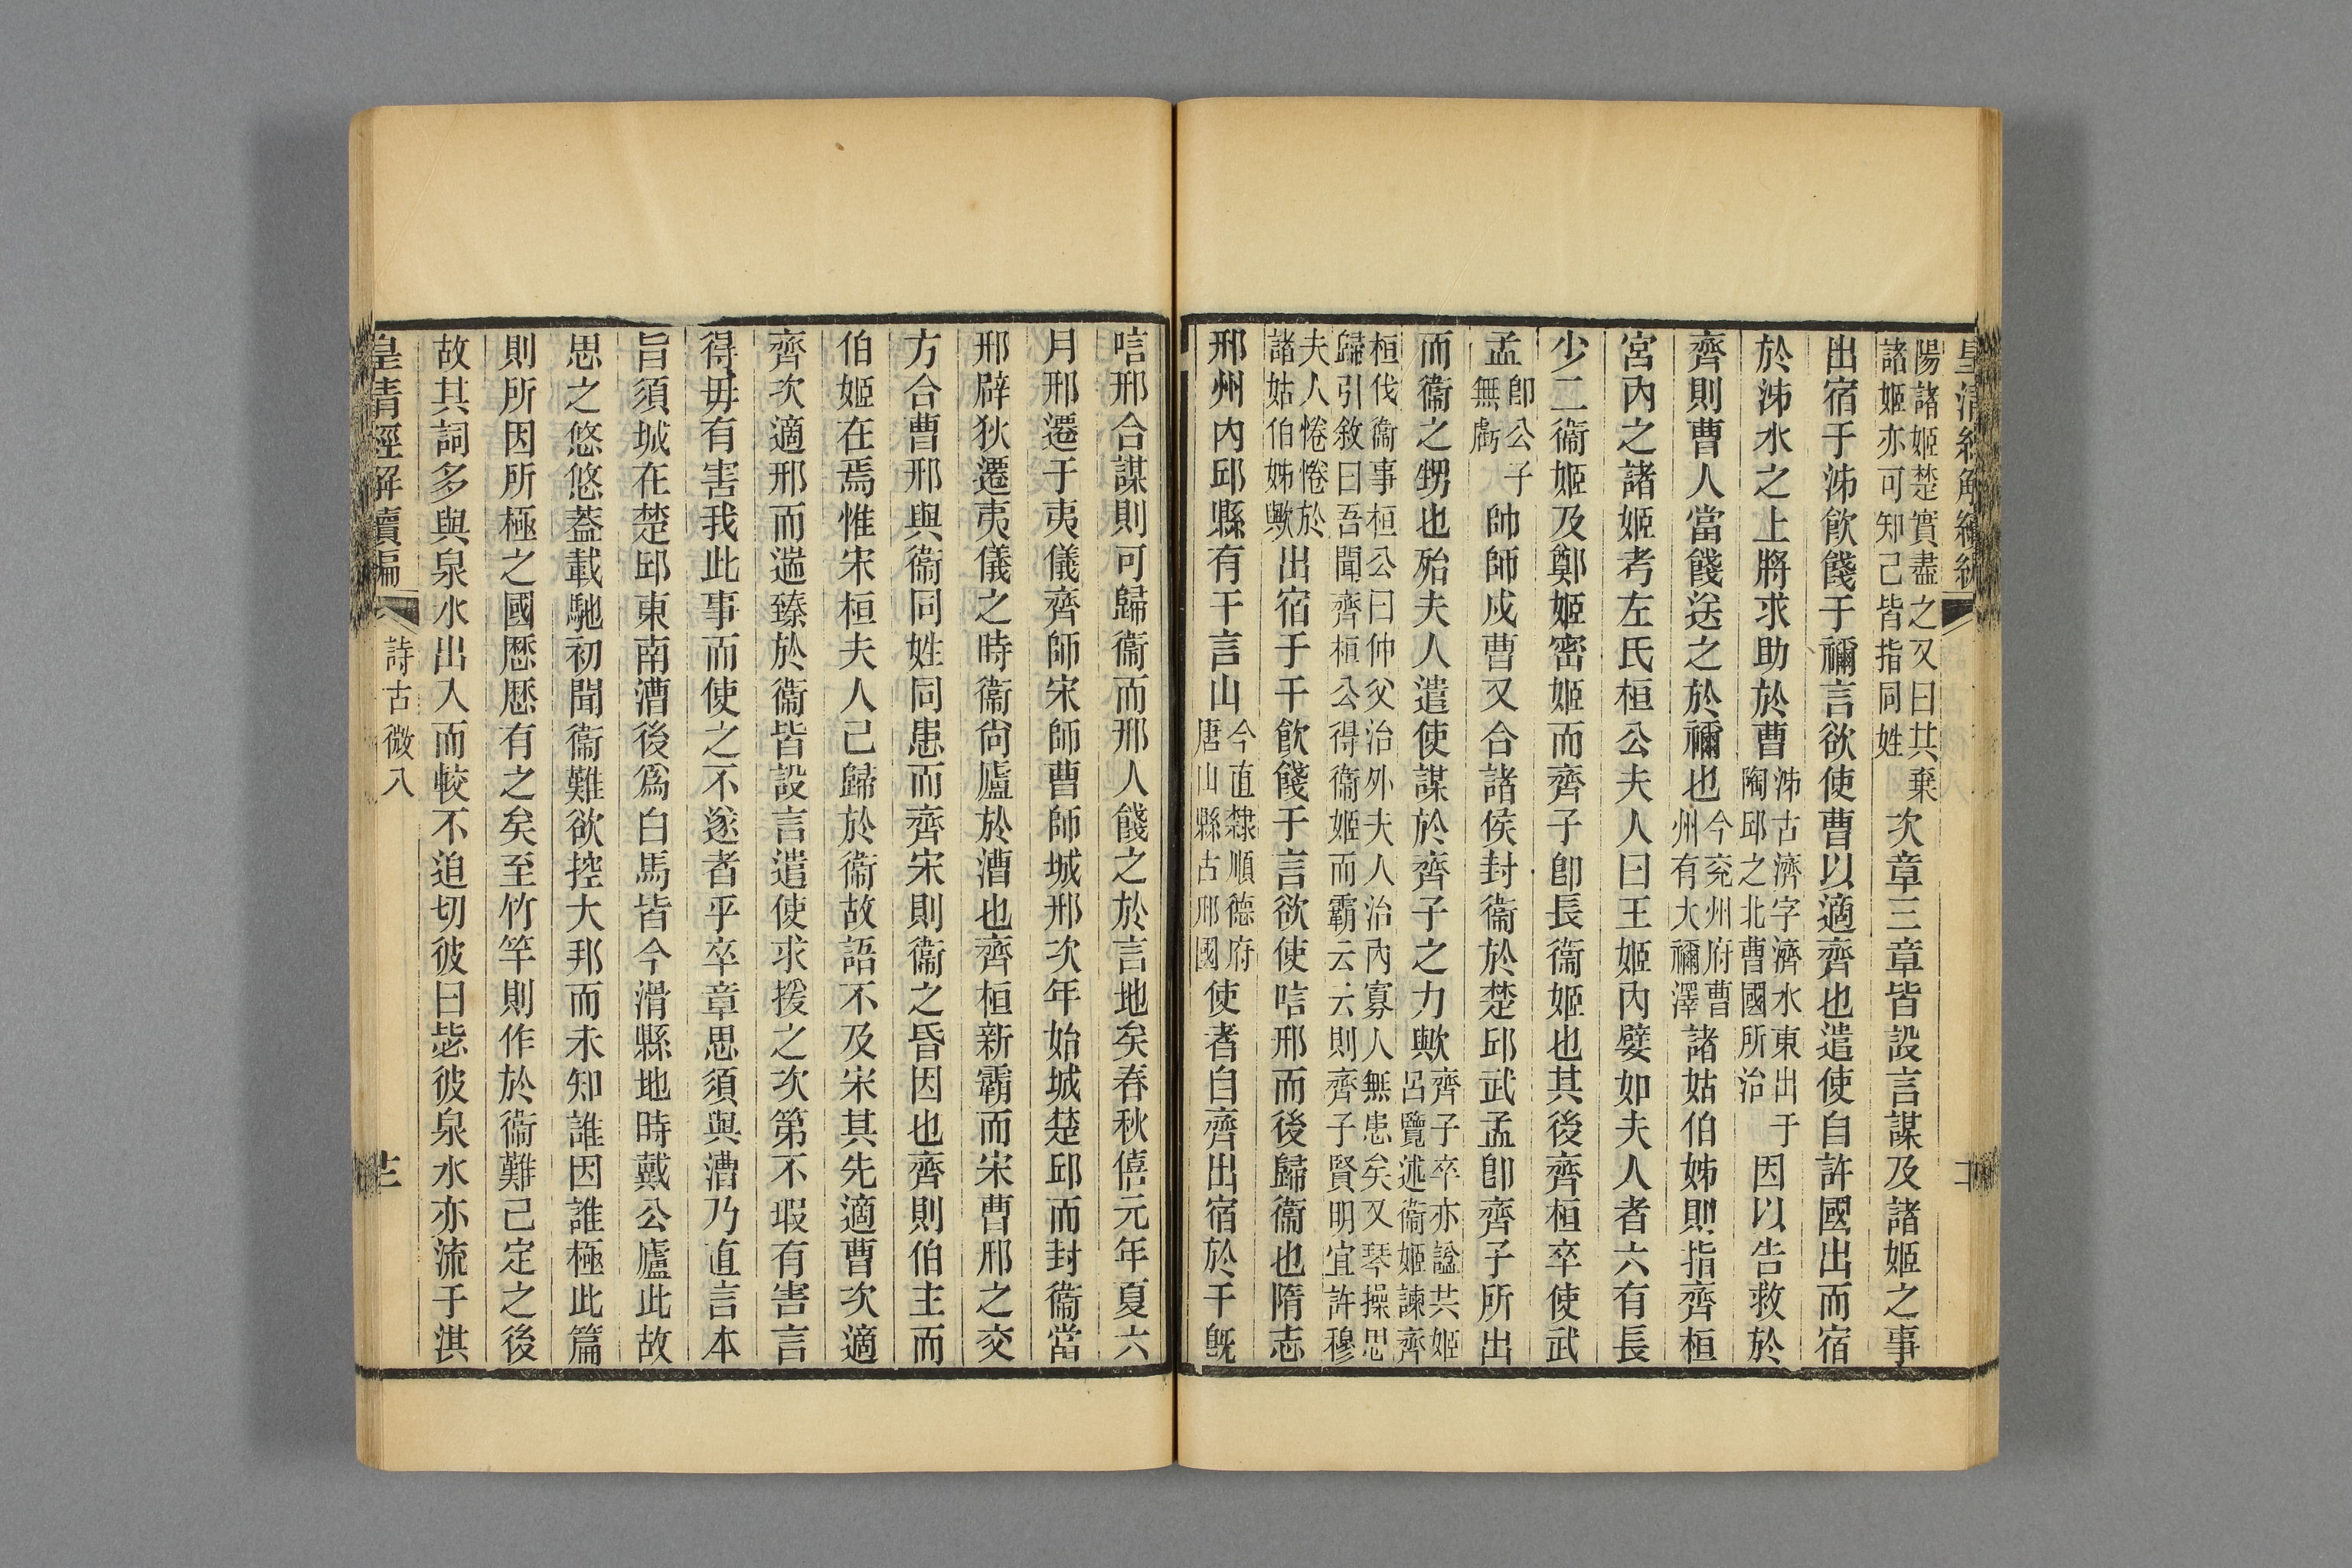 皇清經解續編
陽諸姬楚實盡之又曰其棄
諸姬亦可知己皆指同姓
次章三章皆設言謀及諸姬之事
出宿于泲飮餞于禰言欲使曹以適齊也遣使自許國出而宿
於泲水之上將求助於曹
泲古濟字濟水東出于
陶邱之北曹國所治
因以告救於
齊則曹人當餞送之於禰也
今兖州府曹
州有大禰澤
諸姑伯姊則指齊桓
宮內之諸姬考左氏桓公夫人曰王姬內嬖如夫人者六有長
少二衞姬及鄭姬密姬而齊子卽長衞姬也其後齊桓卒使武
孟
卽公子
無虧
帥師戍曹又合諸侯封衞於楚邱武孟卽齊子所出
而衞之甥也殆夫人遣使謀於齊子之力歟
齊子卒亦諡共姬
呂覽述衞姬諫齊
桓伐衞事桓公曰仲父治外夫人治內寡人無患矣又琴操思
歸引敘曰吾聞齊桓公得衞姬而霸云云則齊子賢明宜許穆
夫人惓惓於
諸姑伯姊歟
出宿于干飮餞于言欲使唁邢而後歸衞也隋志
邢州內邱縣有干言山
今直隸順德府
唐山縣古邢國
使者自齊出宿於干旣
唁邢合謀則可歸衞而邢人餞之於言地矣春秋僖元年夏六
月邢遷于夷儀齊師宋師曹師城邢次年始城楚邱而封衞當
邢辟狄遷夷儀之時衞尙廬於漕也齊桓新霸而宋曹邢之交
方合曹邢與衞同姓同患而齊宋則衞之昏因也齊則伯主而
伯姬在焉惟宋桓夫人己歸於衞故語不及宋其先適曹次適
齊次適邢而遄臻於衞皆設言遣使求援之次第不瑕有害言
得毋有害我此事而使之不遂者乎卒章思須與漕乃直言本
旨須城在楚邱東南漕後爲白馬皆今滑縣地時戴公廬此故
思之悠悠蓋載馳初聞衞難欲控大邦而未知誰因誰極此篇
則所因所極之國歷歷有之矣至竹竿則作於衞難己定之後
故其詞多與泉水出入而較不迫切彼曰毖彼泉水亦流于淇
皇淸經解續編
詩古微八